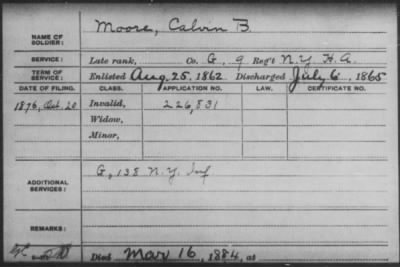 NAME OF SOLDIER: Moore, Calvin B.
SERVICE: Late rank, Co. G, 9 Reg't N.Y. H.A.
TERM OF SERVICE: Enlisted Aug. 25, 1862. Discharged July 6, 1865
DATE OF FILING. CLASS. APPLICATION NO. LAW. CERTIFICATE NO.
1876, Oct. 20 Invalid, 226,831
Widow,
Minor,
ADDITIONAL SERVICES: G, 138 N.Y. Inf
REMARKS:
Died Mar 16, 1884, at